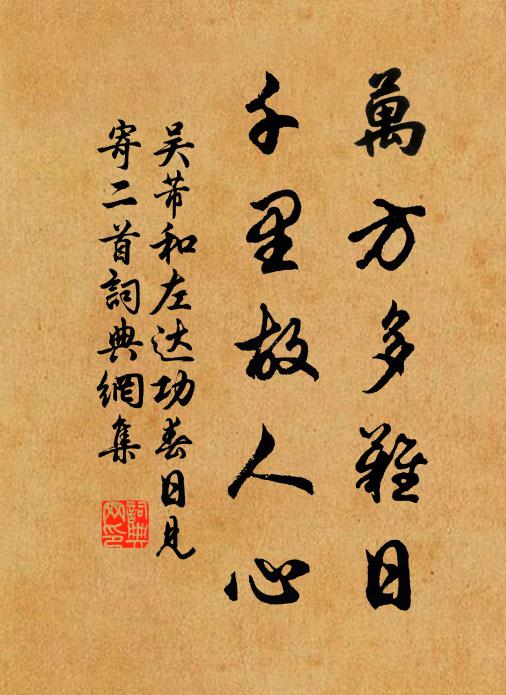 萬方多難日
千里故人心
吴芾和左达功春日見
寄二首詞典網集
詞典網印